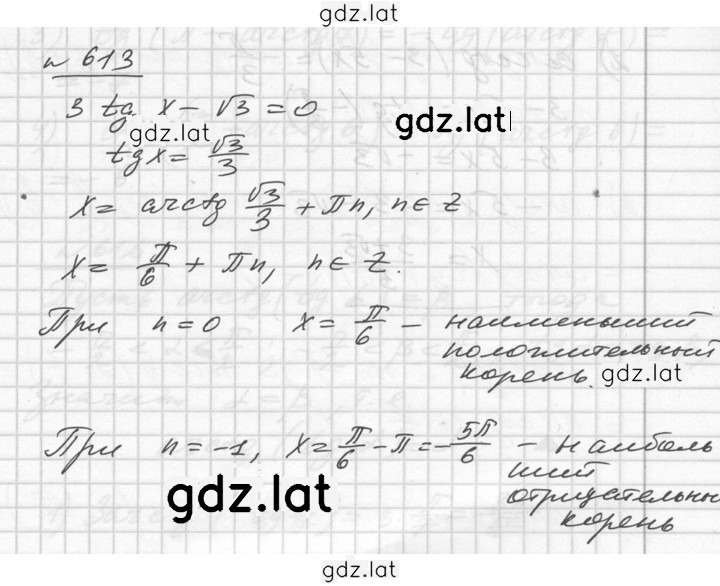 gdz.lat
№ 613
3 tg x − √3 = 0
gdz.lat
gdz.lat
tg x = √3/3
x = arctg √3/3 + πn, n ∈ Z
x = π/6 + πn, n ∈ Z.
При n = 0 x = π/6 − наименьший
положительный
корень.
gdz.lat
При n = −1, x = π/6 − π = −5π/6 − наиболь
ший
отрицательны
корень
gdz.lat
gdz.lat